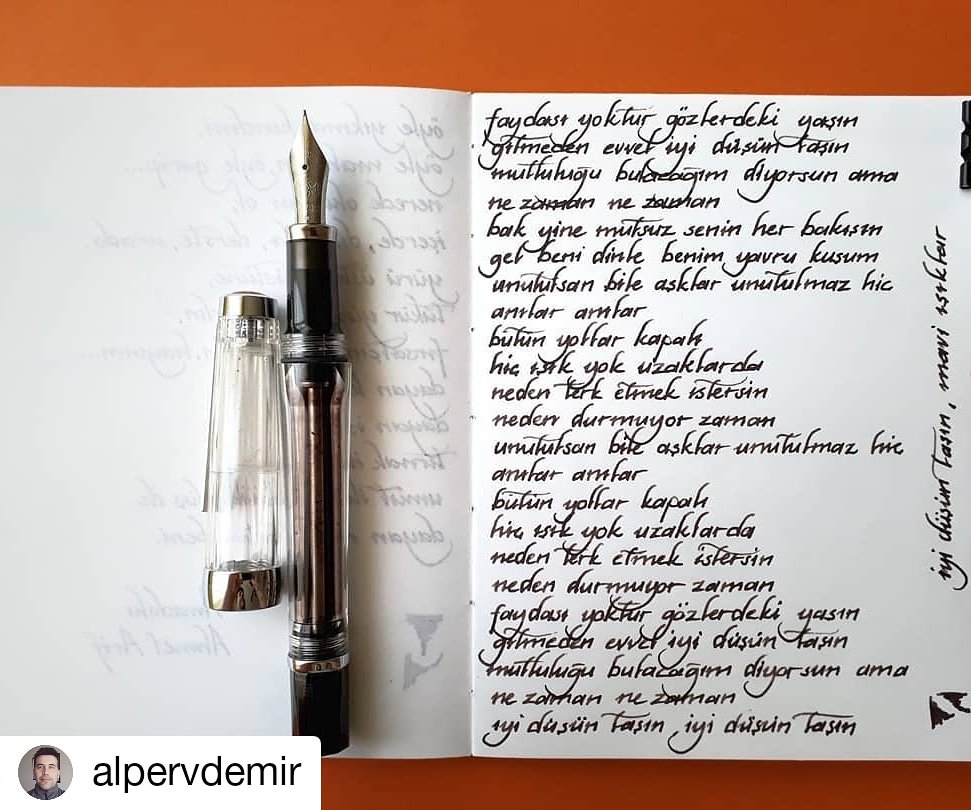 faydası yoktur gözlerdeki yaşın
gitmeden evvel iyi düşün taşın
mutluluğu bulacağım diyorsun ama
ne zaman ne zaman
bak yine mutsuz senin her bakışın
gel beni dinle benim yavru kuşum
unutulsan bile aşklar unutulmaz hiç
anılar anılar
bütün yollar kapalı
hiç ışık yok uzaklarda
neden terk etmek istersin
neden durmuyor zaman
unutulsan bile aşklar unutulmaz hiç
anılar anılar
bütün yollar kapalı
hiç ışık yok uzaklarda
neden terk etmek istersin
neden durmuyor zaman
faydası yoktur gözlerdeki yaşın
gitmeden evvel iyi düşün taşın
mutluluğu bulacağım diyorsun ama
ne zaman ne zaman
iyi düşün taşın, iyi düşün taşın
iyi düşün taşın, mavi ışıklar
alpervdemir